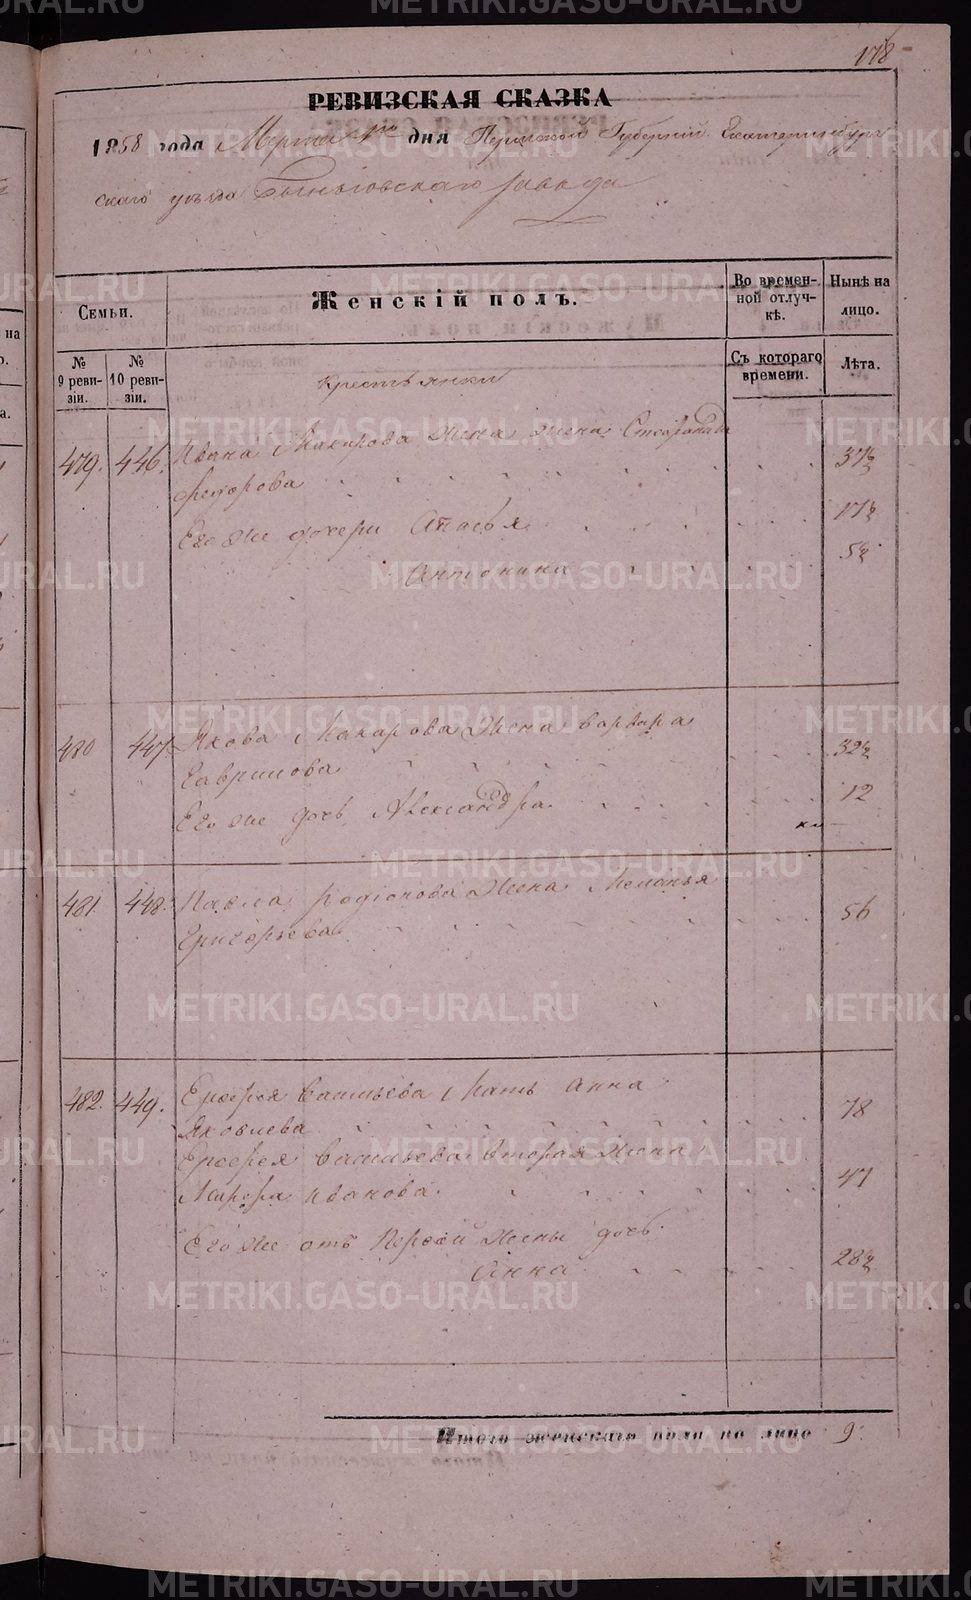 178
РЕВИЗСКАЯ СКАЗКА
1858 года Марта дня Пермской Губерніи Екатеринбург
скаго уезда Быньговскаго завода
Семьи.
Женскій полъ.
Во времен-
ной отлуч-
кѣ.
Нынѣ на
лицо.
№
9 реви-
зіи.
№
10 реви-
зіи.
Съ котораго
времени.
Лѣта.
Крестьянки
479. 446. Ивана Макарова жена жена Стефанида
Федорова 37½
Его же дочери Апасья 17½
Антонина 5½
480 447. Якова Макарова Жена варвара
Гаврилова 32½
Его же дочь Александра 12
481 448. Павла Родіонова Жена Меланья
Григорьева 56
482. 449. Ерофея Васильева Мать Анна
Яковлева 78
Ерофея Васильева вторая Жена
Марфа Иванова 47
Его же отъ Первой Жены дочь
Анна 28½
Итого женскаго пола на лицо 9
METRIKI.GASO-URAL.RU